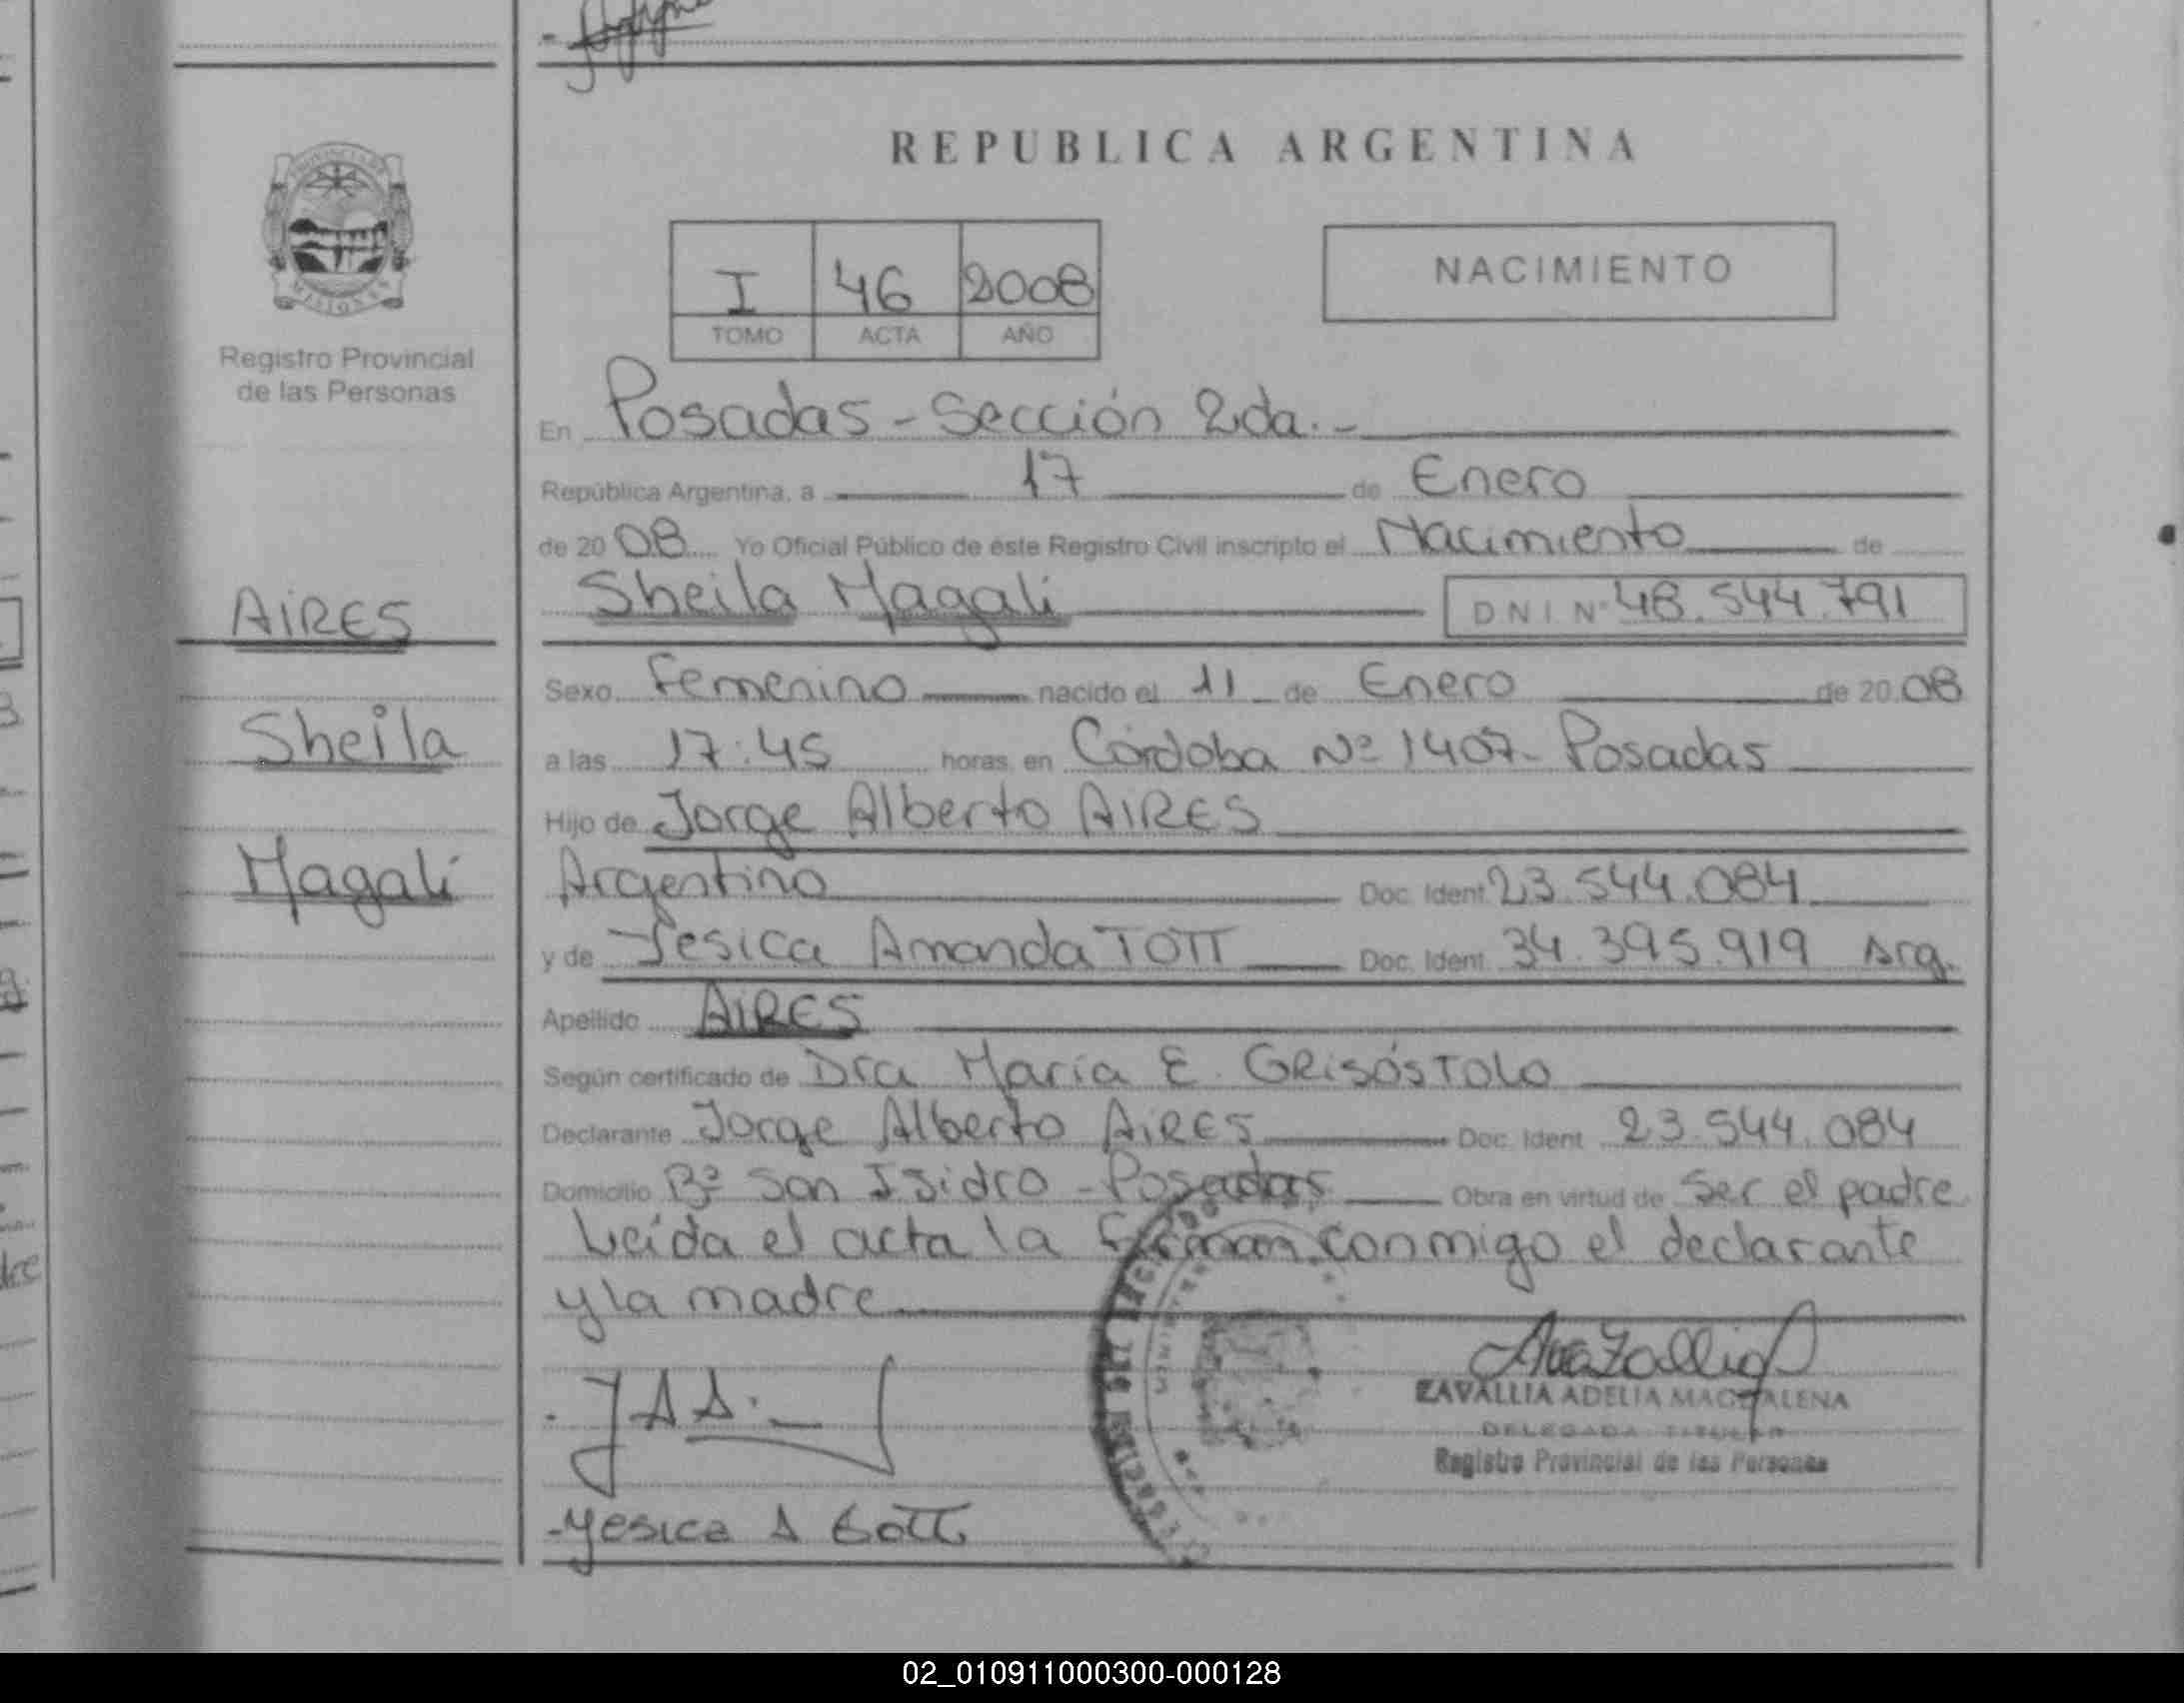 REPUBLICA ARGENTINA
PROVINCIA DE
MISIONES
Registro Provincial
de las Personas
I 46 2008
TOMO ACTA AÑO
NACIMIENTO
En Posadas - Sección 2da.-
República Argentina, a 17 de Enero
de 20 08 Yo Oficial Público de éste Registro Civil inscripto el Nacimiento de
Sheila Magali DNI Nº 48.544.791
AIRES
Sheila
Magali
Sexo Femenino nacido el 11 de Enero de 20 08
a las 17:45 horas, en Córdoba Nº 1407- Posadas
Hijo de Jorge Alberto AIRES
Argentino Doc. Ident. 23.544.084
y de Jesica Amanda TOTT Doc. Ident. 34.395.919 Arg.
Apellido AIRES
Según certificado de Dra María E. GRISÓSTOLO
Declarante Jorge Alberto AIRES Doc. Ident. 23.544.084
Domicilio Bº San Isidro - Posadas Obra en virtud de Ser el padre
Leída el acta la firman conmigo el declarante
y la madre
JAA.
ZAVALLIA ADELIA MAGDALENA
DELEGADA TITULAR
Registro Provincial de las Personas
-Yesica A Tott
02_010911000300-000128